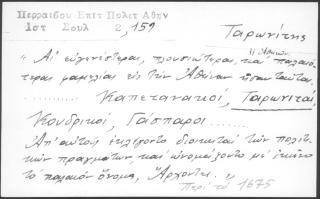 Περραιδου Επιτ Πολιτ Αθην
Ιστ Σουλ 2, 159
Ταρωνίτης
"Αἱ εὐγενέστεραι, πλουσιώτεραι, καὶ παλαιό-
τεραι φαμελλίαι εἰς τὴν Ἀθήναν ἦσαν ταῦται
......... Καπετανακοί, Ταρωνῖται,
Κουδρικοί, Γάσπαροι .....
Ἀπ' αὐτοὺς ἐκλέγοντο διοικηταὶ τῶν πολιτι-
κῶν πραγμάτων, καὶ ὠνομάζοντο μὲ ἐκεῖνο
τὸ παλαιὸν ὄνομα, Ἄρχοντες. "
Περὶ τὸ 1675